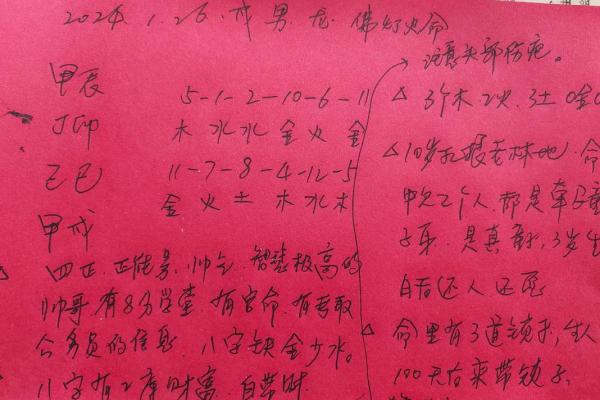 2024.1.26.戌 男.龙.佛灯火命
甲辰
丁卯
己巳
甲戌
5-1-2-10-6-11
木 水 水 金 火 金
11-7-8-4-12-5
金 火 土 木 水 木
四正.正能量.帅气.智慧极高的
帅哥.有8分学堂.有官命.有考取
公务员的信息.八字缺金少水.
八字有2库财富.自带财
注意头部伤疤。
△3个木.2火.3土
△10岁扎根老林地.命
中欠2个人.都是牵子童
子来.是真童子,3岁生
白后还人还死
命里有3道锁子,生人
100天后来带锁子.